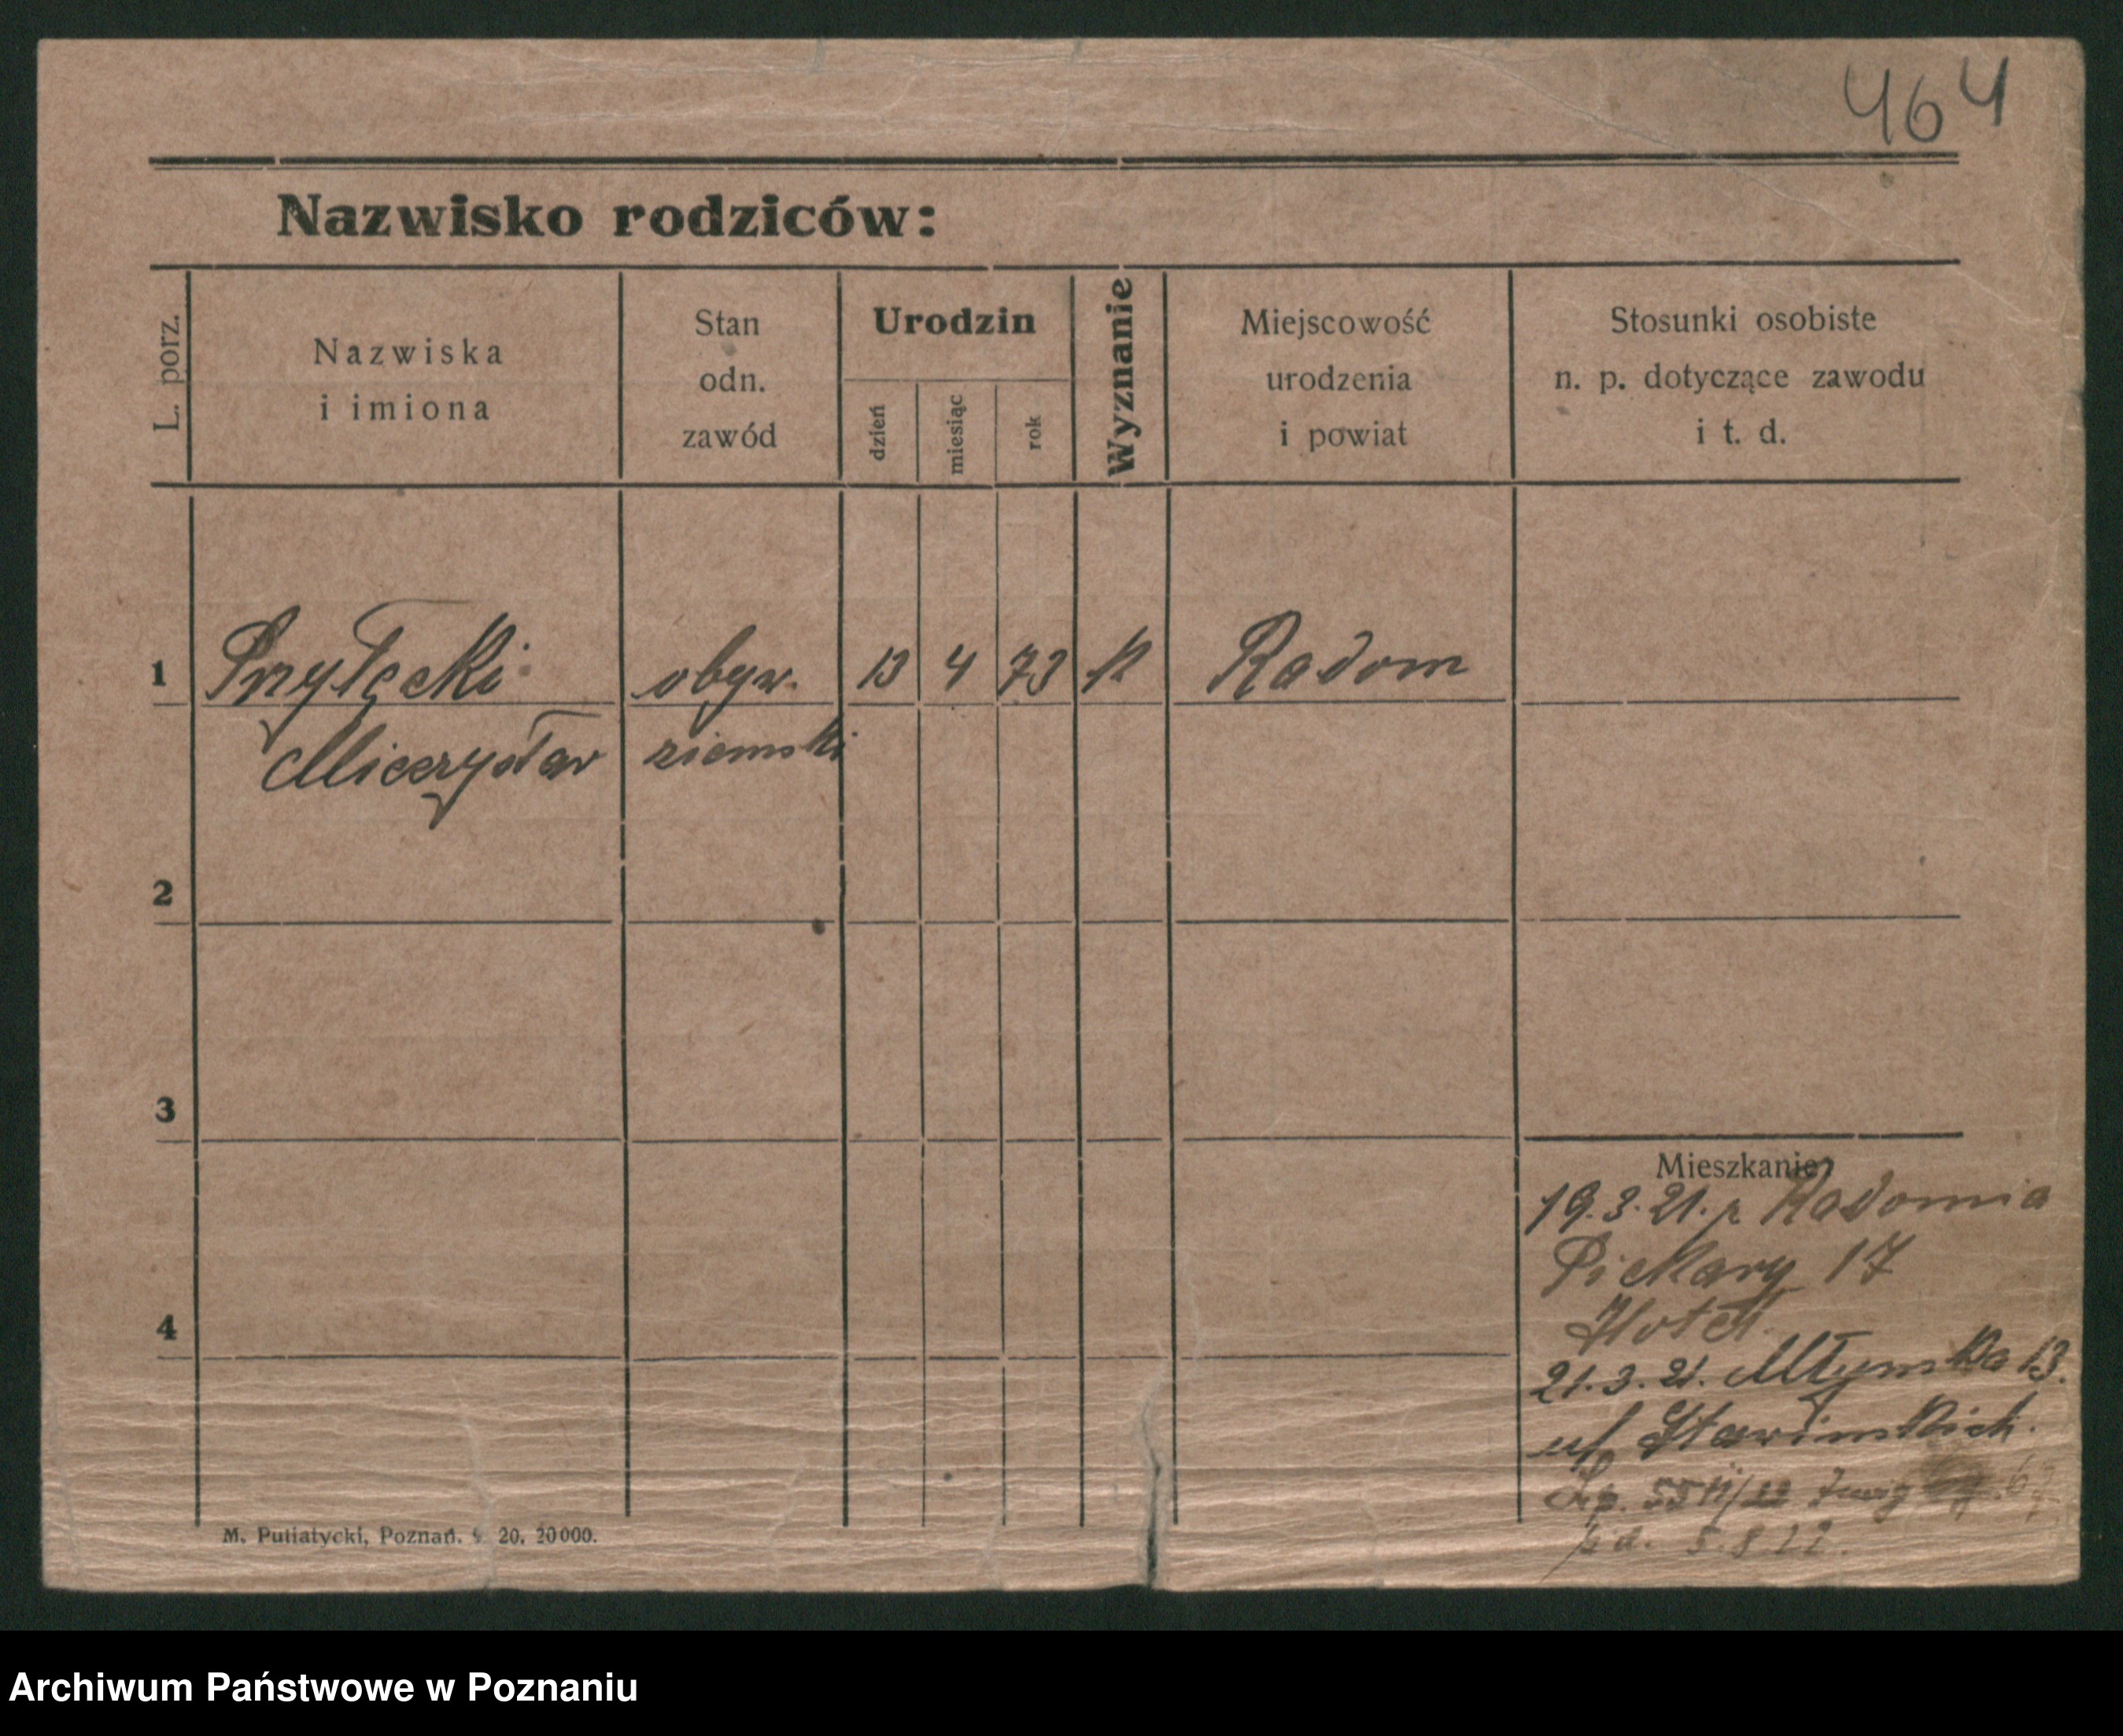 464
Nazwisko rodziców:
L. porz.
Nazwiska
i imiona
Stan
odn.
zawód
Urodzin
dzień
miesiąc
rok
Wyznanie
Miejscowość
urodzenia
i powiat
Stosunki osobiste
n. p. dotyczące zawodu
i t. d.
1 obyw. 13 4 73 K Radom
Mieczysław ziemski
2
3
4
Mieszkanie
19.3.21. z Radomia
Piekary 17
Hotel
21.3.21. Młyńska 13.
5.8.22.
M. Putiatycki, Poznań. 9. 20. 20000.
Archiwum Państwowe w Poznaniu